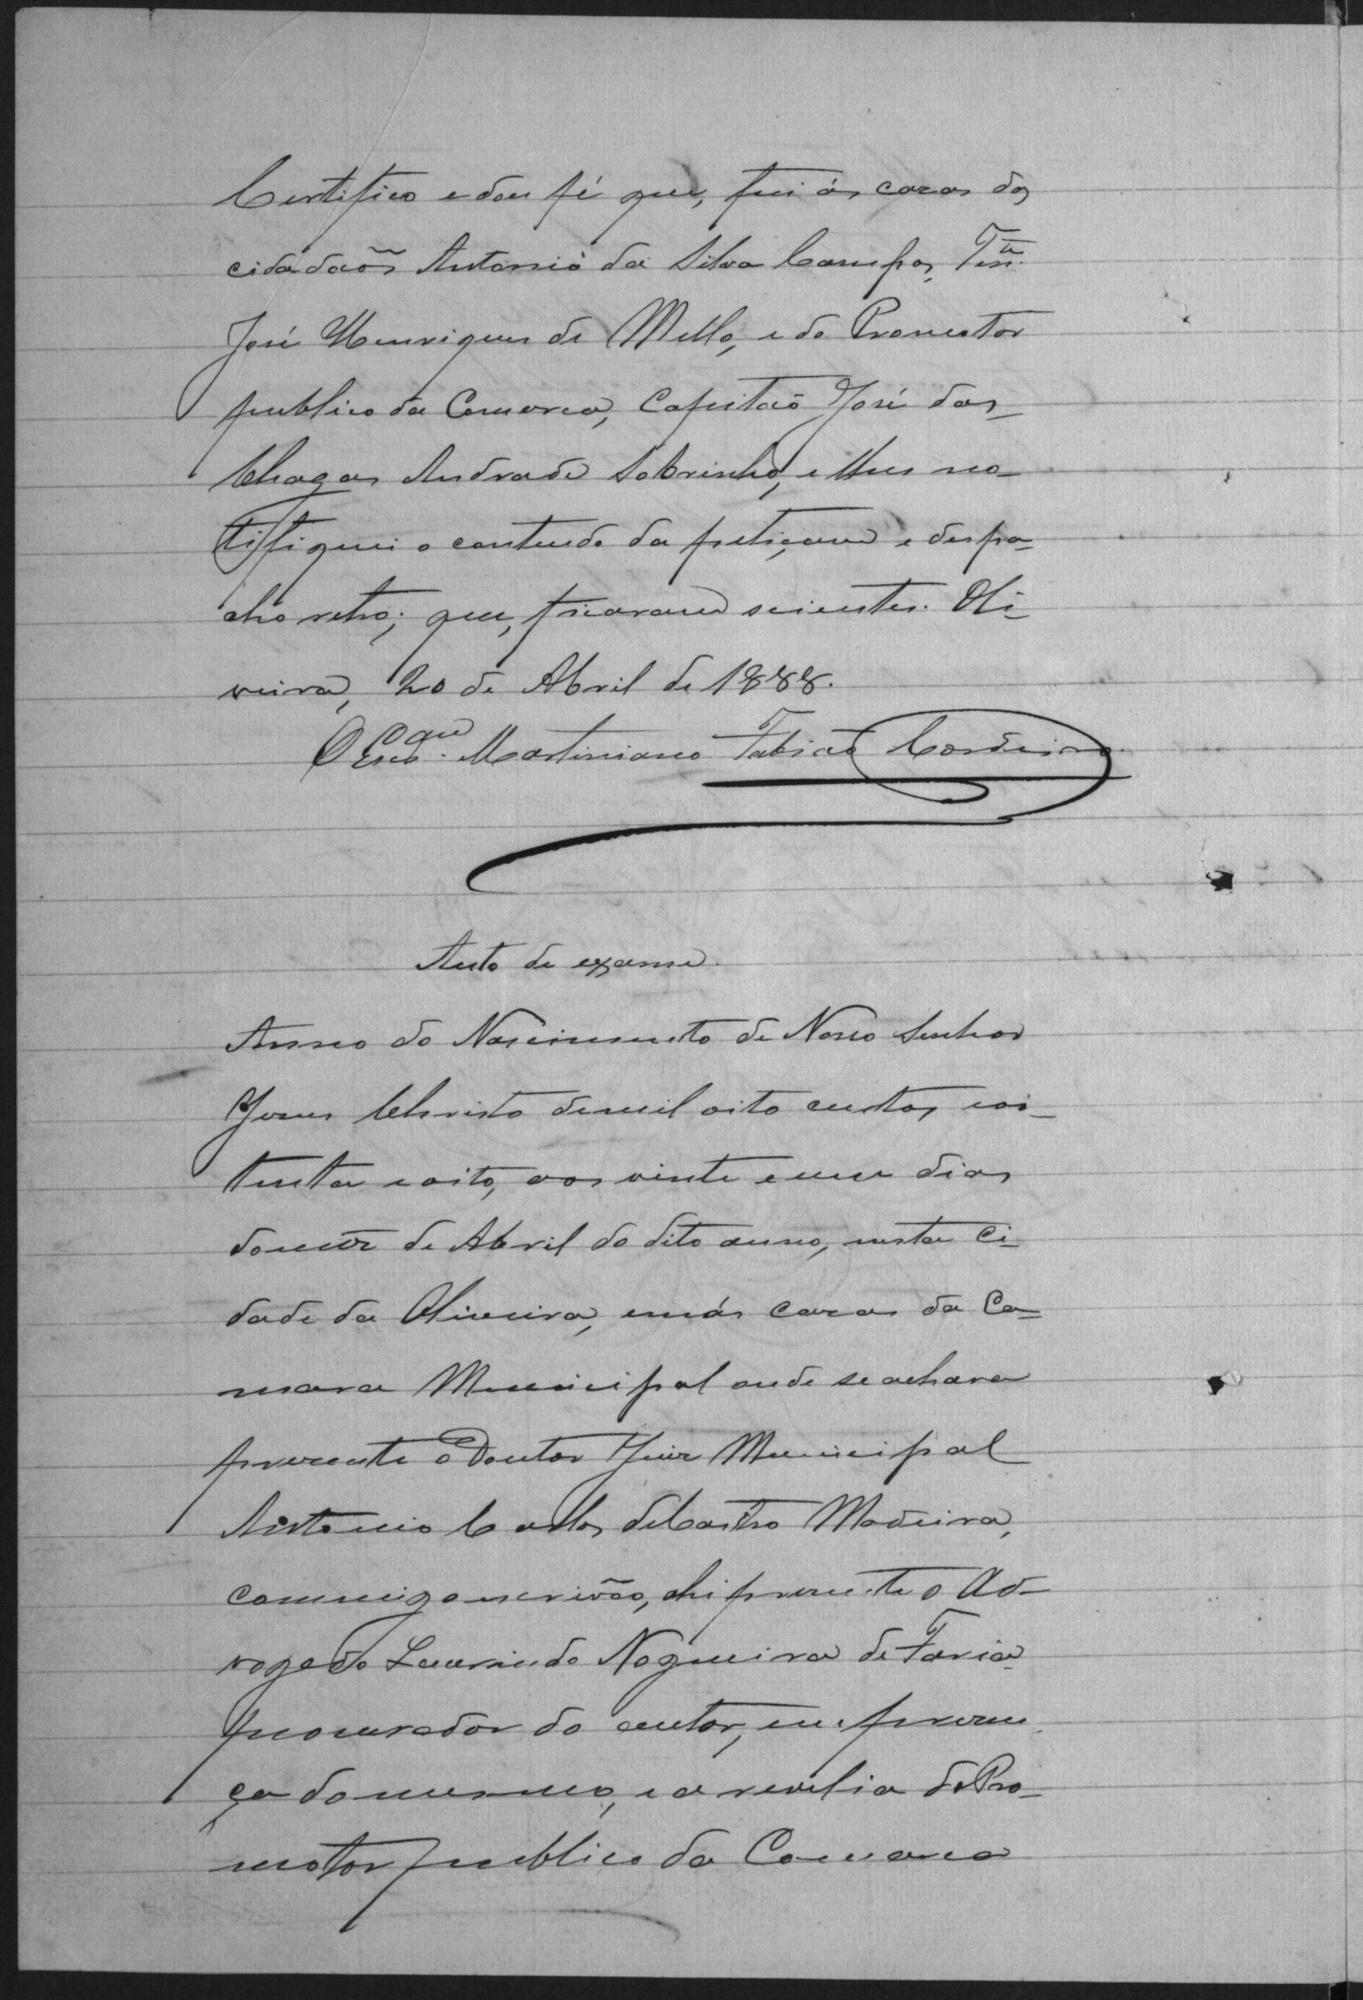 Certifico e dou fé que, fui ás cazas dos
cidadaõs Antonio da Silva Campos, Tene.
José Henriques de Mello, e do Promotor
publico da Comarca, Capitaõ José das
Chagas Andrade Sobrinho, e lhes no-
tifiquei o conteudo da petiçam e despa-
cho retro; que, ficaram scientes. Oli-
veira, 20 de Abril de 1888.
O Escam. Martiniano Fabião Cordeiro
Auto de exame.
Anno do Nascimento de Nosso Senhor
Jesus Christo de mil oito centos, e oi-
tenta e oito, aos vinte e um dias
do mêz de Abril do dito anno, nesta Ci-
dade da Oliveira, em ás cazas da Ca-
mara Municipal onde se achava
prezente o Doutor Juiz Municipal
Antonio Carlos de Castro Madeira,
commigo escrivão, ahi prezente o Ad-
vogado Laurindo Nogueira de Faria
procurador do autor, em prezen-
ça do mesmo, e a revelia do Pro-
motor publico da Comarca